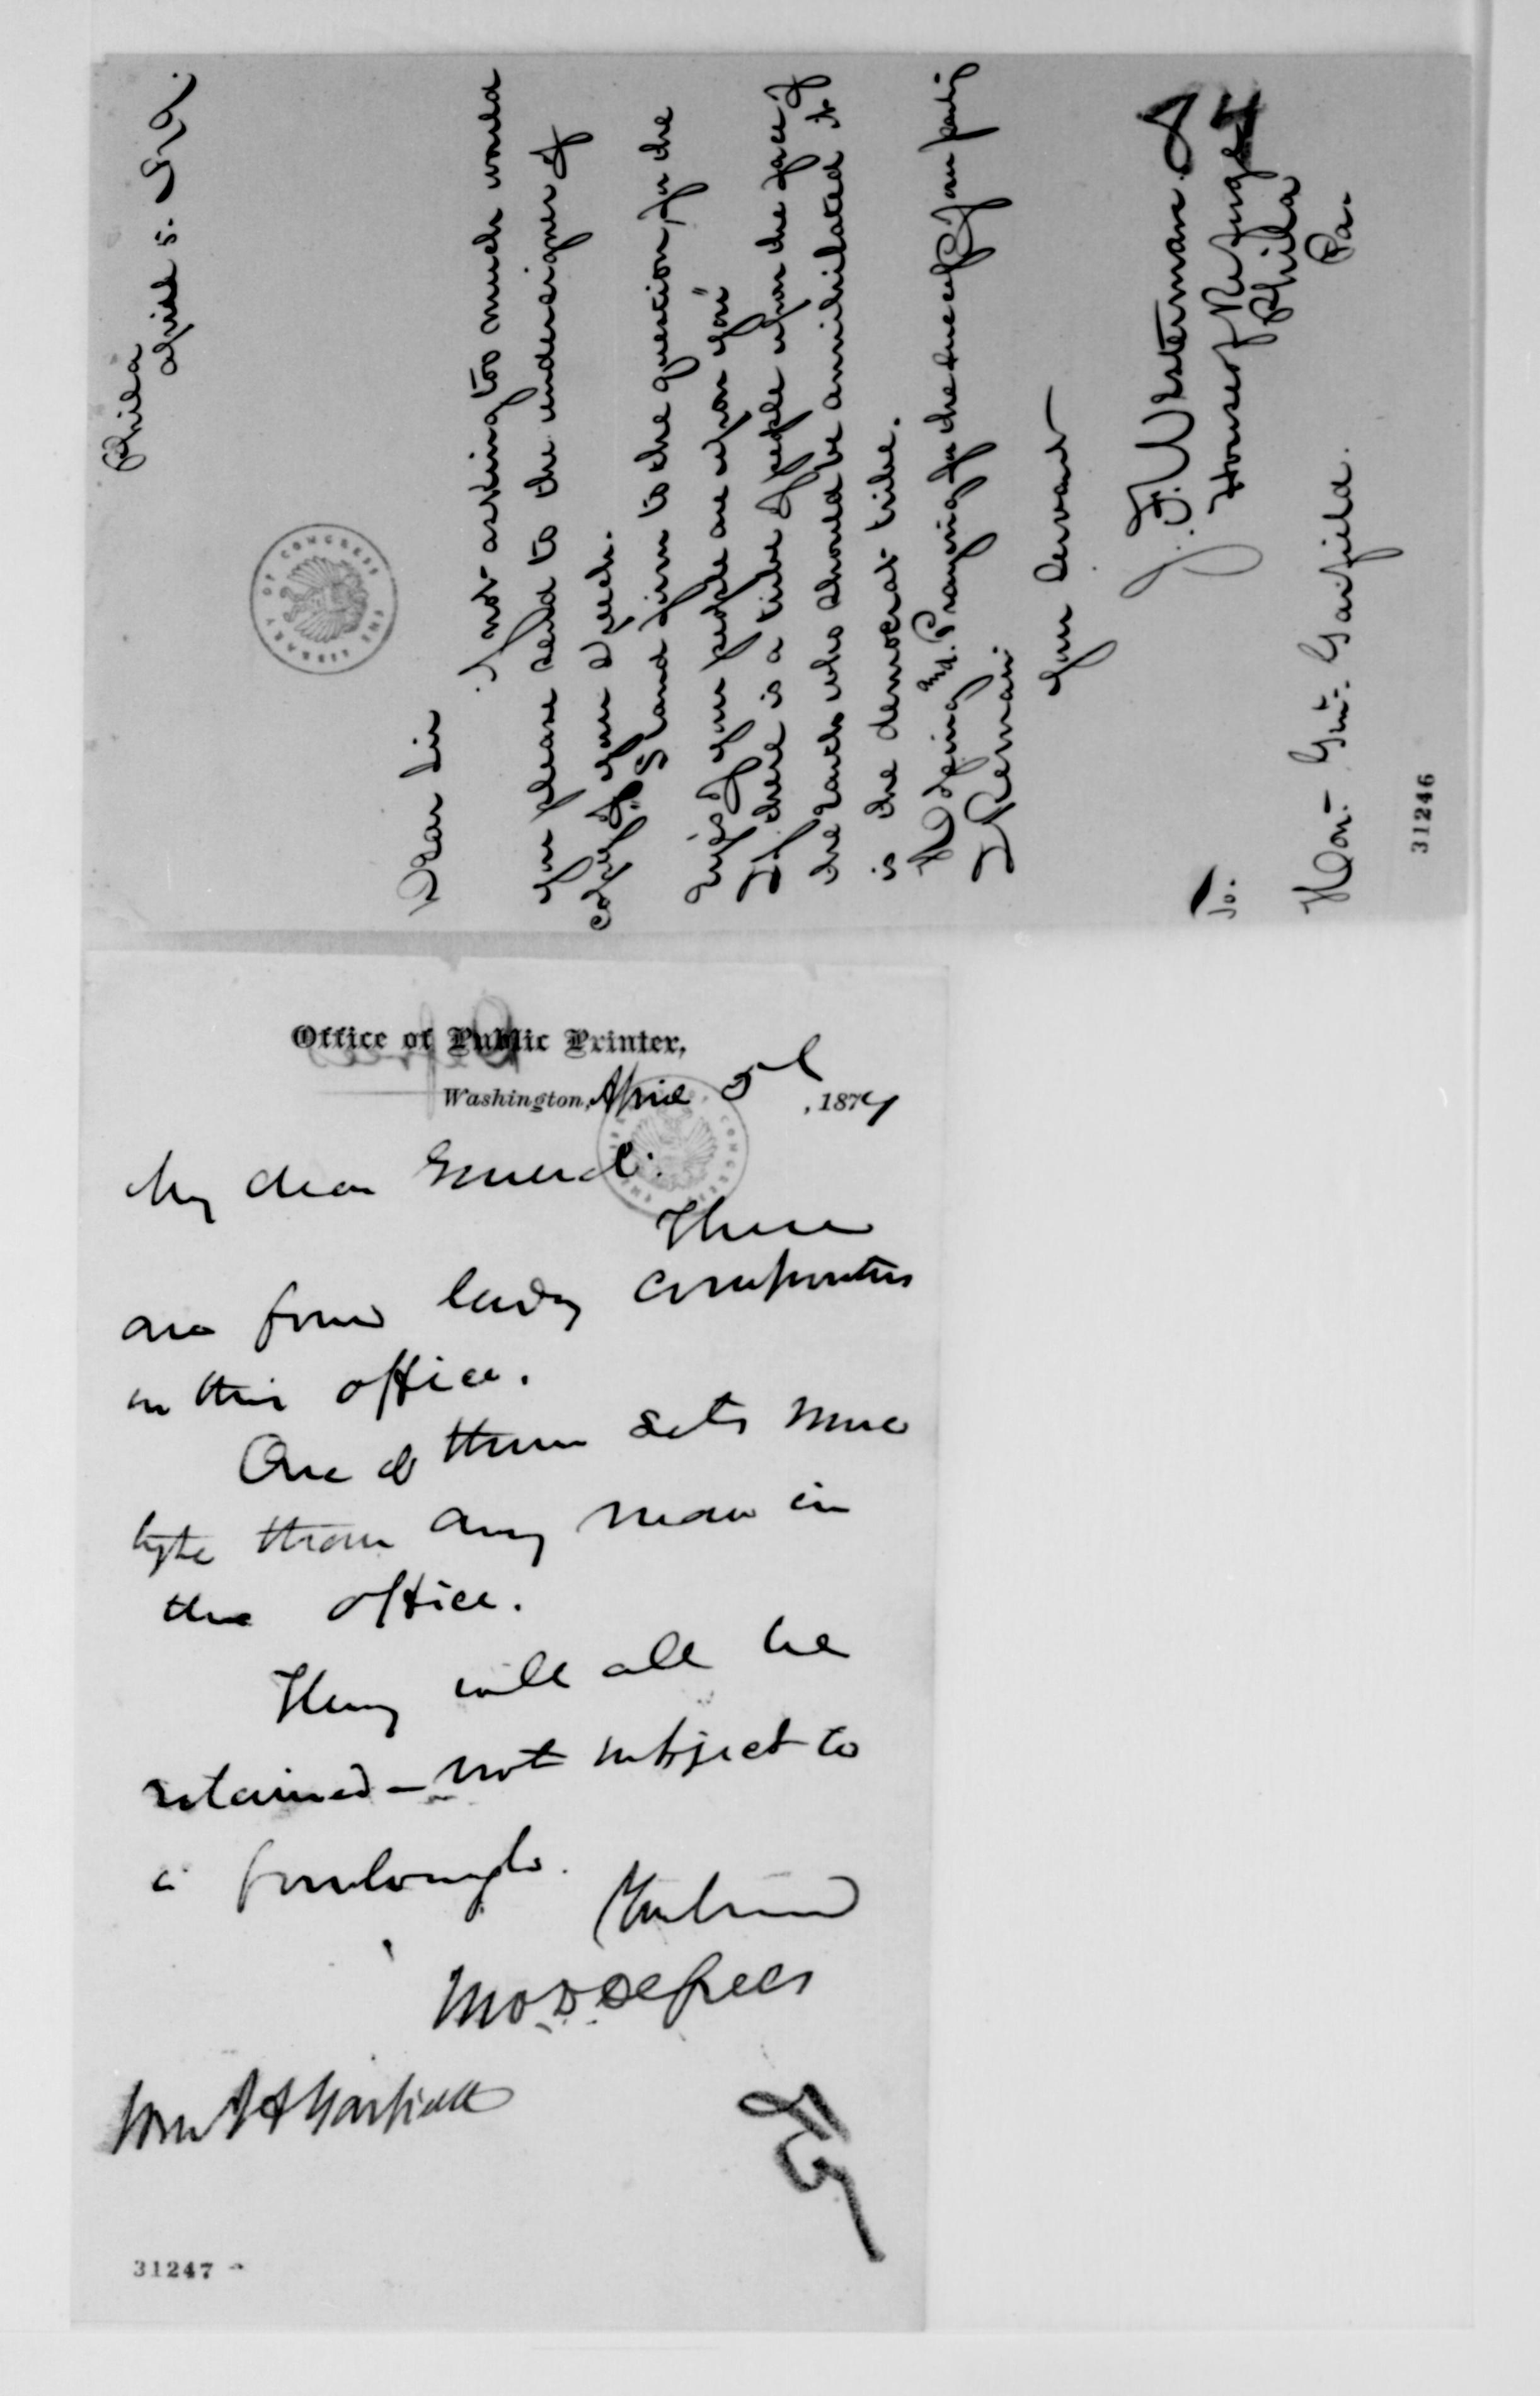 Phila
April 5. 1879.
Dear Sir
If not asking too much would
you please send to the undersigner of
copy of your speech.
Stand firm to the question, for the
eyes of your people are upon you"
If there is a tribe of people upon the face of
the earth who should be annihilated it
is the democrat tribe.
Hoping and Praying for the success of our party
I Remain
Your Servant
J. F. Westerman
House of Refuge
Phila
Pa.
To.
Hon. Genl. Garfield.
31246
LIBRARY OF CONGRESS
Office of Public Printer,
Washington, April 5th, 1879
My dear General:
There
are four lady compositors
in this office.
One of them sets more
type than any man in
the office.
They will all be
retained – not subject to
a furlough.
Yours
J D Defrees
Hon J A Garfield
31247